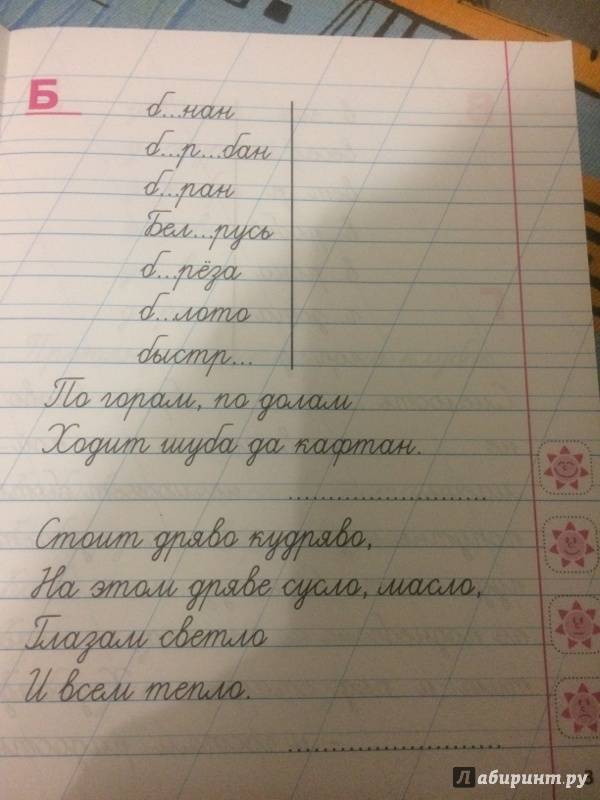 Б
б...нан
б...р...бан
б...ран
Бел...русь
б...рёза
б...лото
быстр...
По горам, по долам
Ходит шуба да кафтан.
..............................
Стоит дряво кудряво,
На этом дряве сусло, масло,
Глазам светло
И всем тепло.
..............................
3
Лабиринт.ру